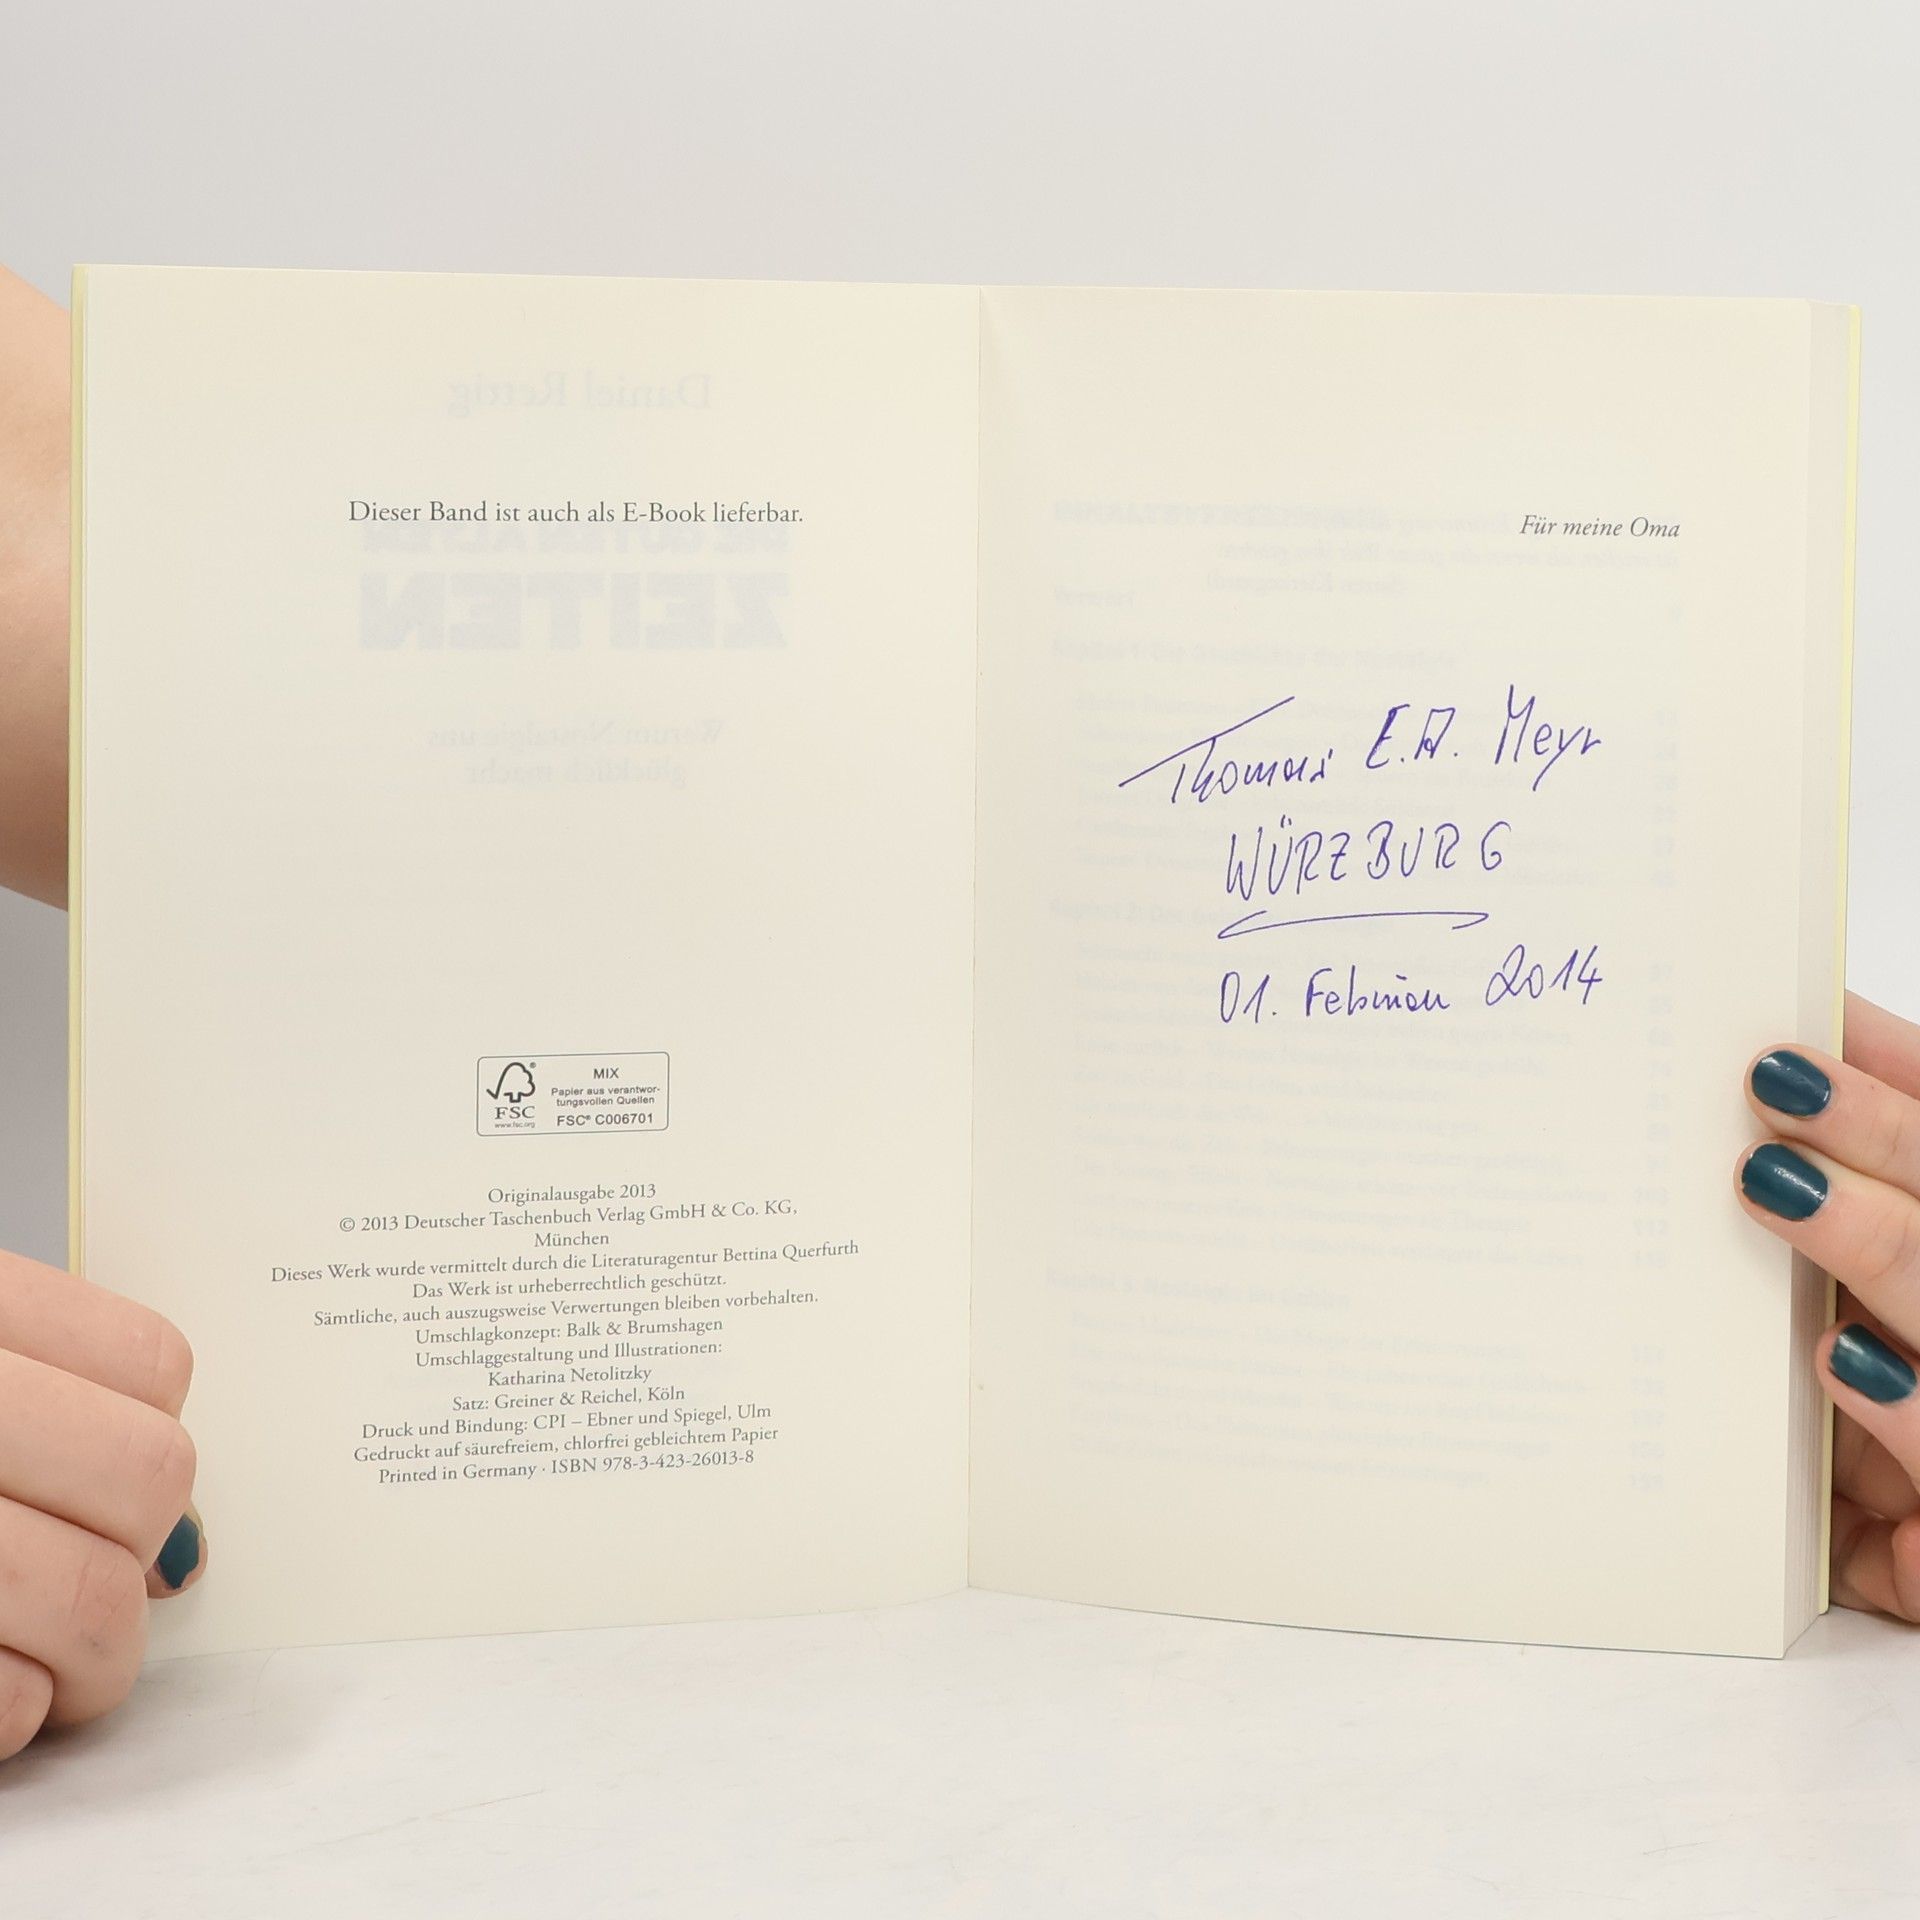 Dieser Band ist auch als E-Book lieferbar.
FSC®
www.fsc.org
MIX
Papier aus verantwor-
tungsvollen Quellen
FSC® C006701
Originalausgabe 2013
© 2013 Deutscher Taschenbuch Verlag GmbH & Co. KG,
München
Dieses Werk wurde vermittelt durch die Literaturagentur Bettina Querfurth
Das Werk ist urheberrechtlich geschützt.
Sämtliche, auch auszugsweise Verwertungen bleiben vorbehalten.
Umschlagkonzept: Balk & Brumshagen
Umschlaggestaltung und Illustrationen:
Katharina Netolitzky
Satz: Greiner & Reichel, Köln
Druck und Bindung: CPI – Ebner und Spiegel, Ulm
Gedruckt auf säurefreiem, chlorfrei gebleichtem Papier
Printed in Germany · ISBN 978-3-423-26013-8
Für meine Oma
Thomas E.A. Meyr
WÜRZBURG
01. Februar 2014